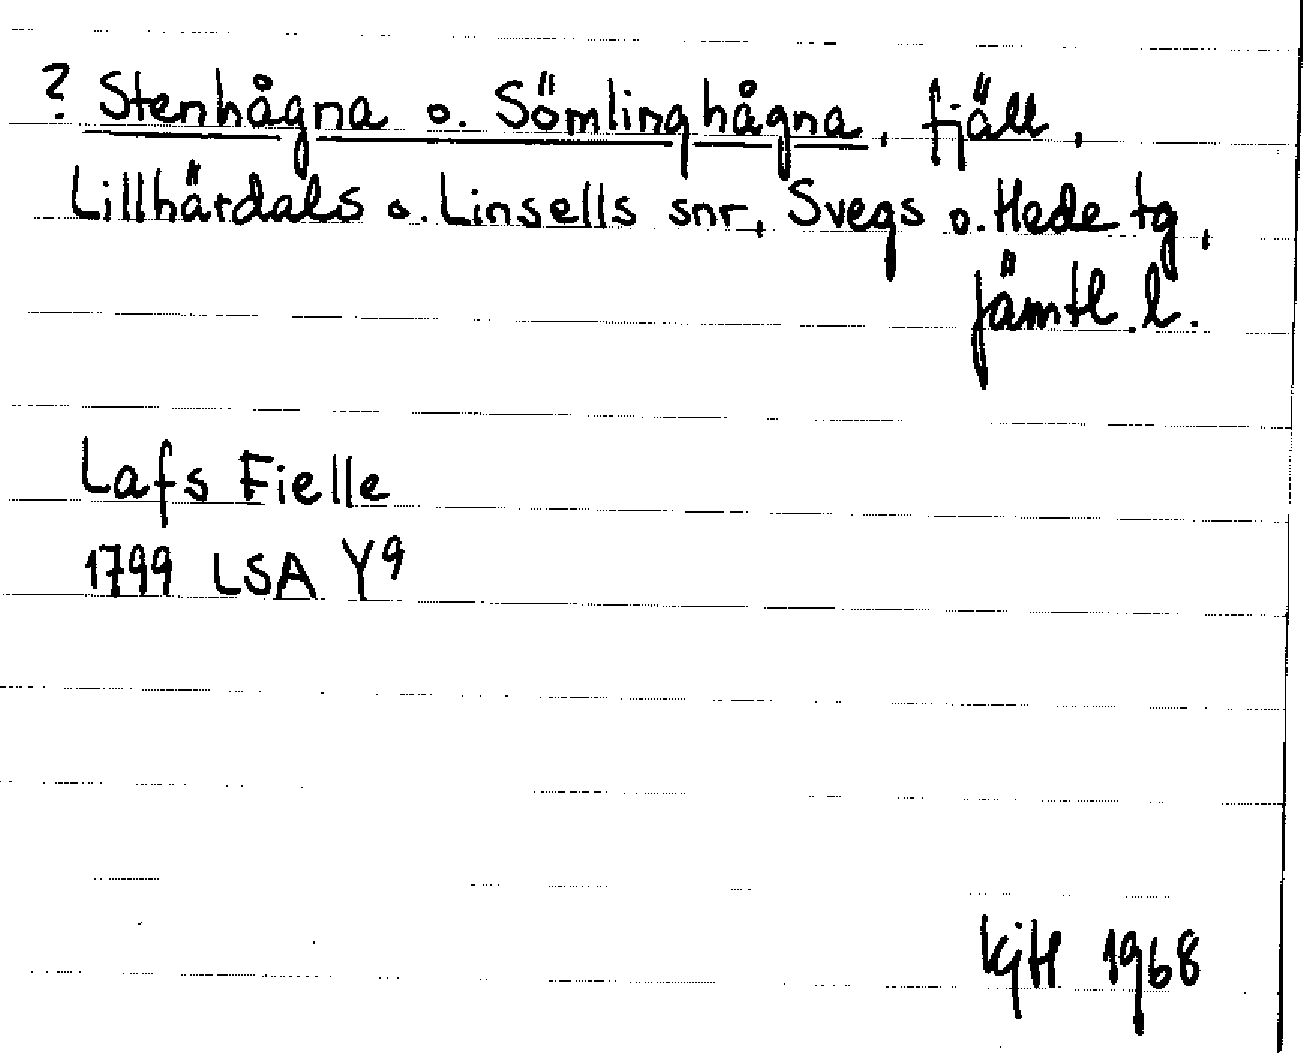 ? Stenhågna o. Sömlinghågna, fjäll,
Lillhärdals o. Linsells snr, Svegs o. Hede tg,
Jämtl. l.
Lafs Fielle
1799 LSA Y9
KjH 1968